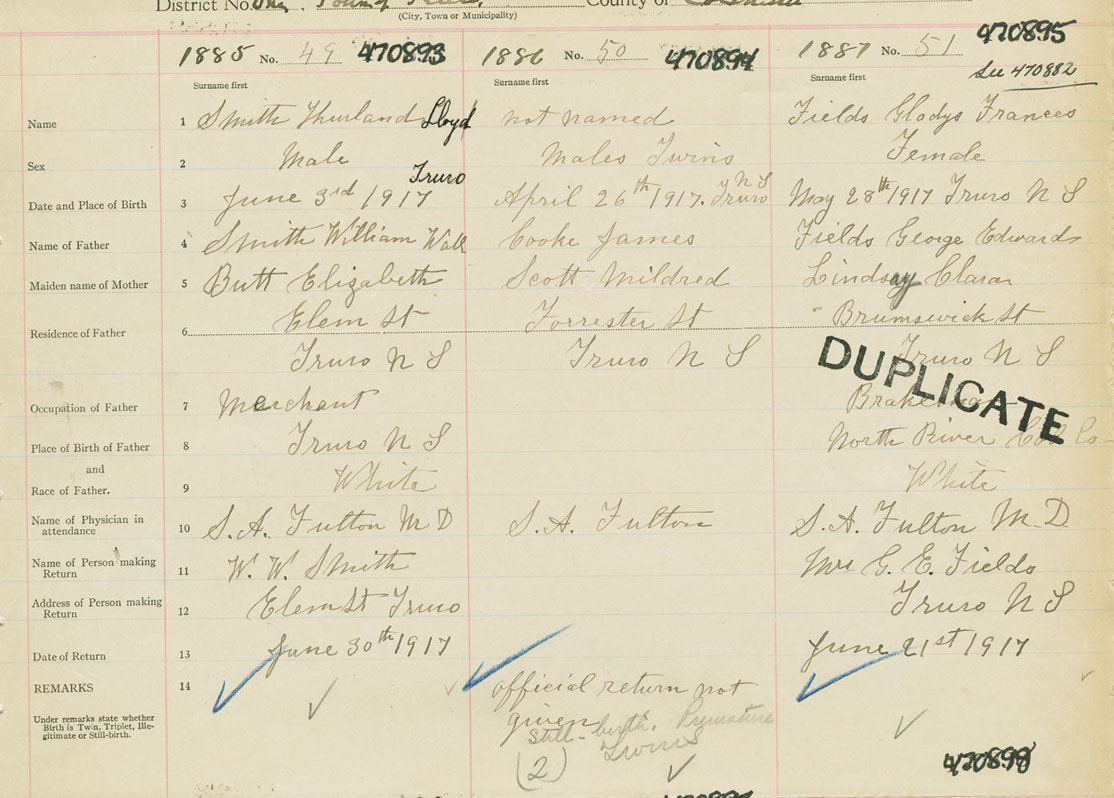 District No. One, Town of Truro, County of Colchester
(City, Town or Municipality)
1885 No. 49 470893 1886 No. 50 470894 1887 No. 51 470895
See 470882
Surname first Surname first Surname first
Name 1 Smith Thurland Lloyd not named Fields Gladys Frances
Sex 2 Male Males Twins Female
Date and Place of Birth 3 June 3rd 1917 Truro April 26th 1917. Truro N S May 28th 1917 Truro N S
Name of Father 4 Smith William Wall Cooke James Fields George Edward
Maiden name of Mother 5 Butt Elizabeth Scott Mildred Lindsay Clara
Residence of Father 6 Elem St Forrester St Brumswick St
Truro N S Truro N S Truro N S
DUPLICATE
Occupation of Father 7 Merchant Brakeman
Place of Birth of Father 8 Truro N S North River Col Co
and
Race of Father. 9 White White
Name of Physician in attendance 10 S. A. Fulton M D S. A. Fulton S. A. Fulton M. D.
Name of Person making Return 11 W. W. Smith Mrs G. E. Fields
Address of Person making Return 12 Elem St Truro Truro N S
Date of Return 13 June 30th 1917 June 21st 1917
REMARKS 14 official return not
given
Under remarks state whether Birth is Twin, Triplet, Ille-
gitimate or Still-birth.
Still-birth. Premature
(2) Twins